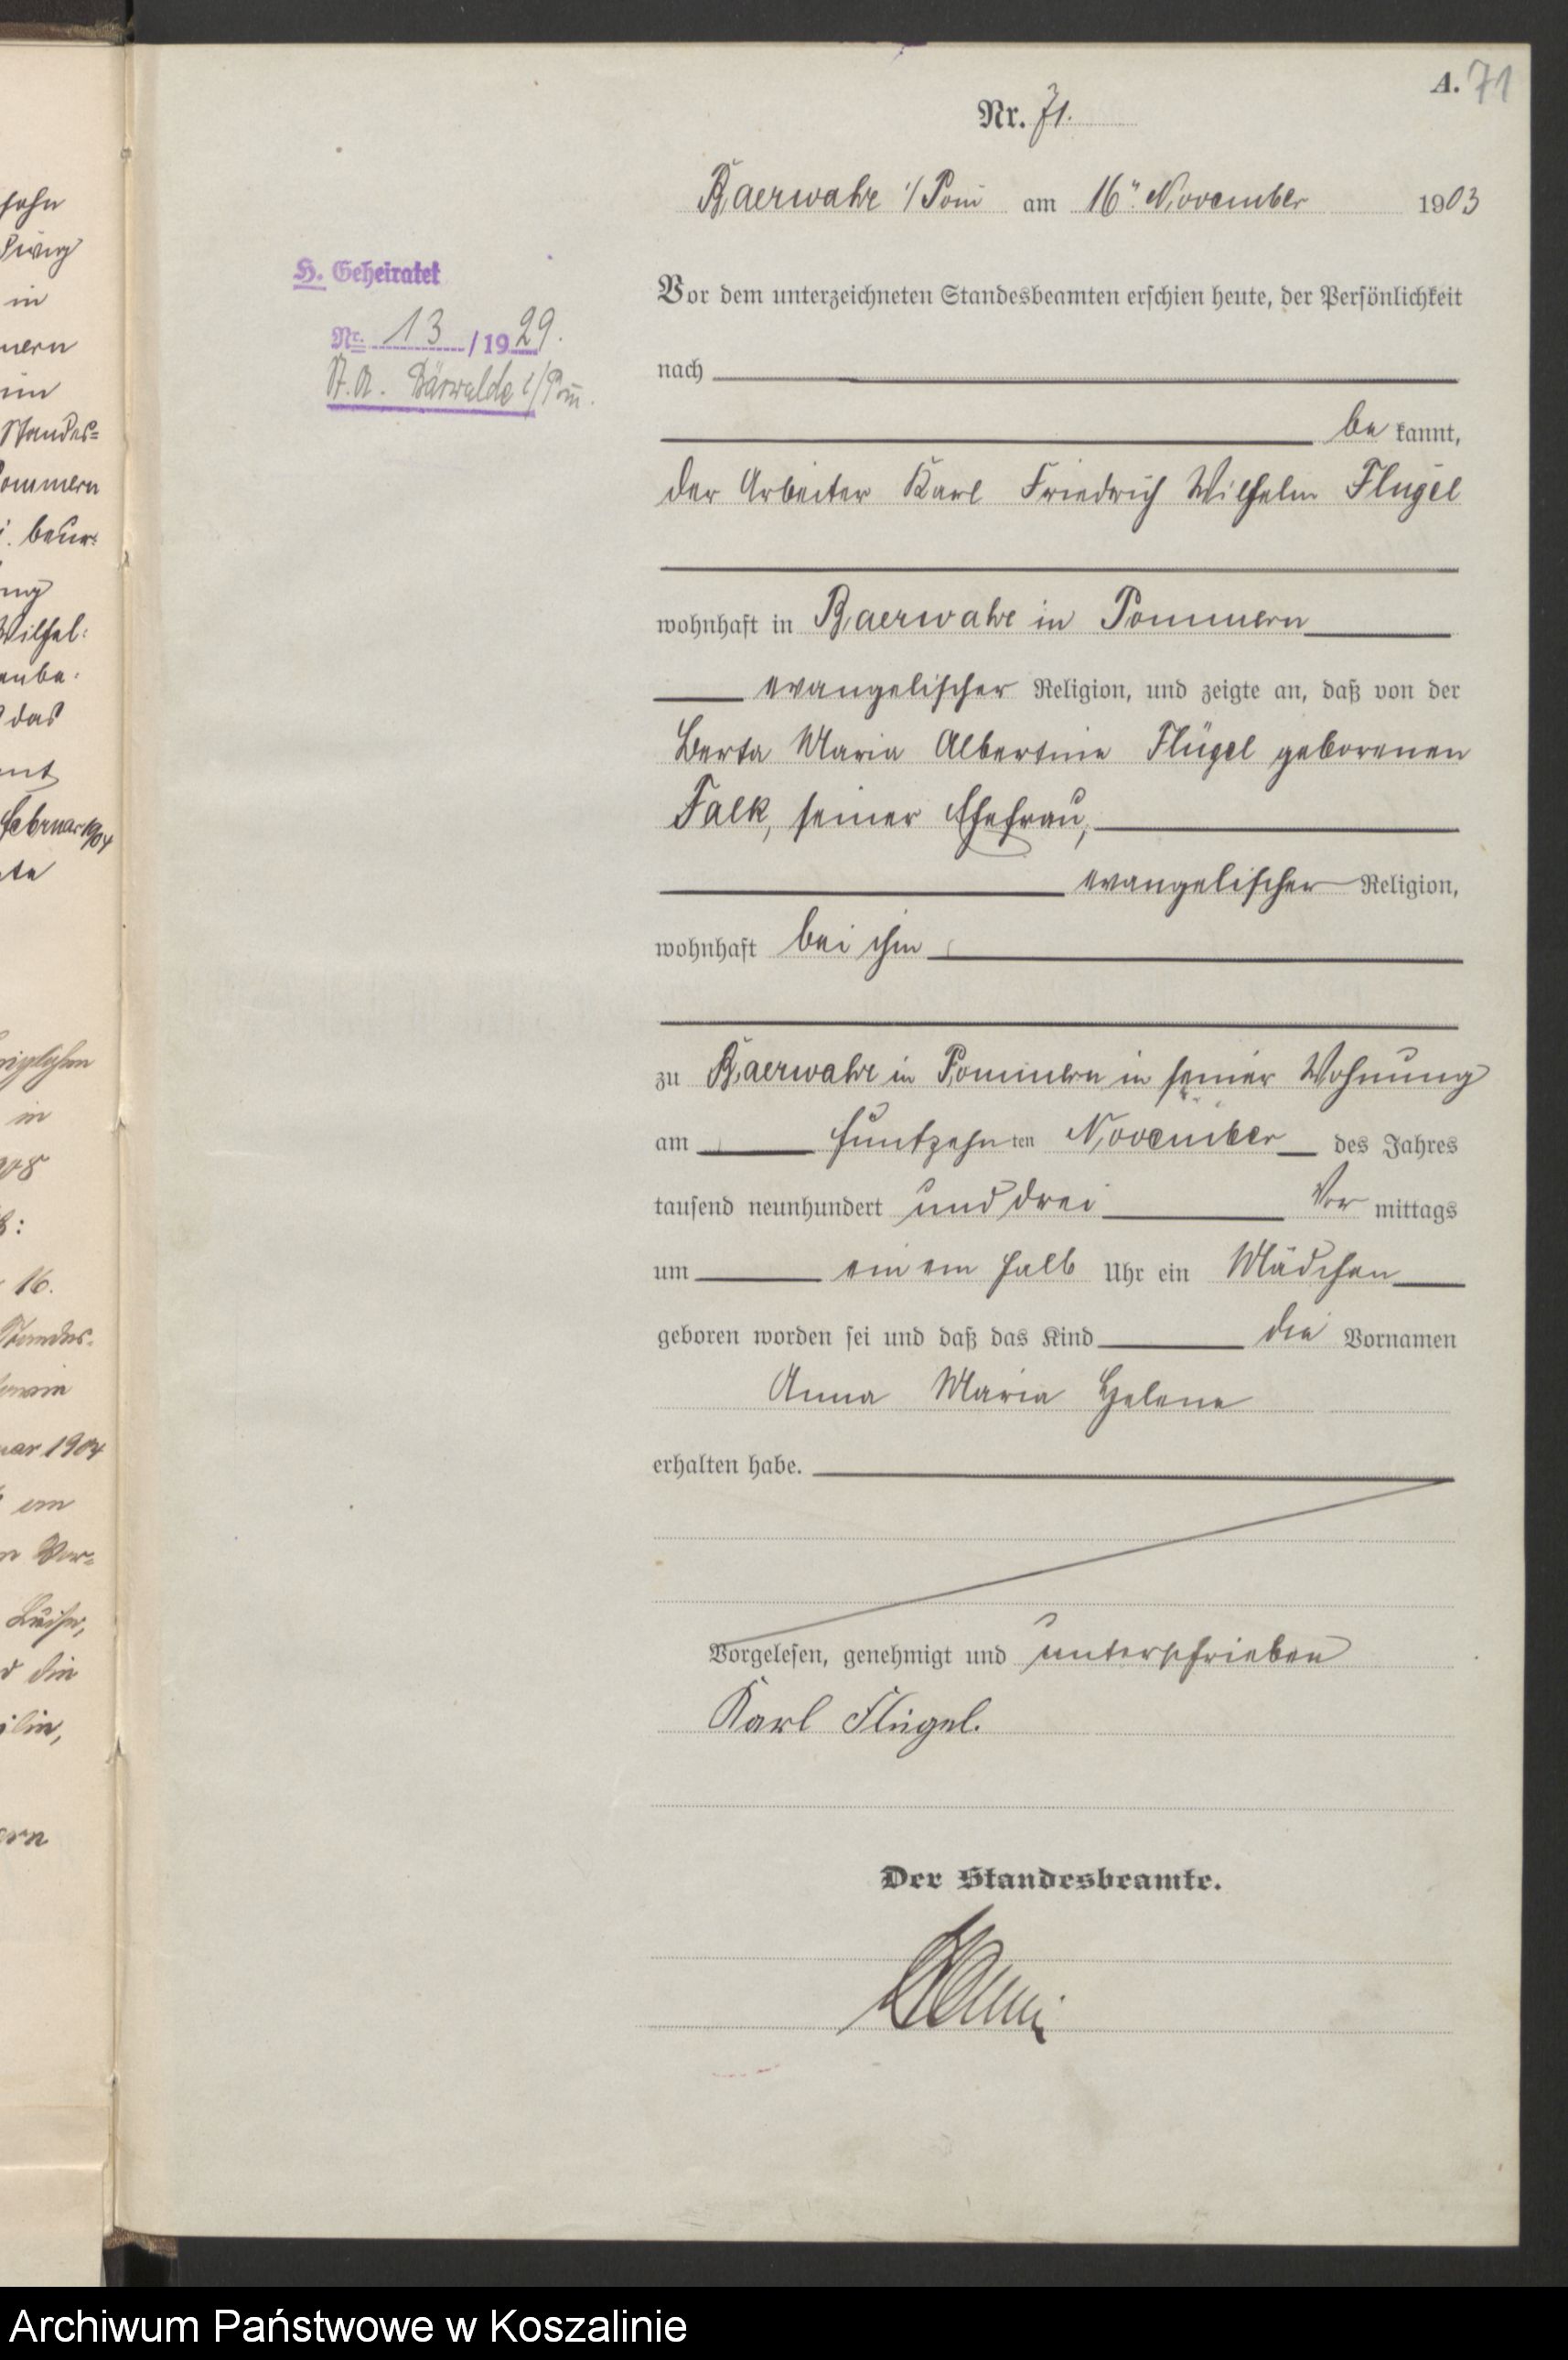 sohn
in
mern
im
Standes=
ommern
beur:
ung
Wilhel:
das
Februar 1904
in
16.
Standes-
uar 1904
die
ern
A. 71
Nr. 71.
Baerwalde i/Pom am 16ten November 1903
H. Geheiratet
Nr. 13 / 1929.
St. A. Bärwalde i/Pom.
Vor dem unterzeichneten Standesbeamten erschien heute, der Persönlichkeit
nach
be kannt,
der Arbeiter Karl Friedrich Wilhelm Flügel
wohnhaft in Baerwalde in Pommern
evangelischer Religion, und zeigte an, daß von der
Berta Maria Albertine Flügel geborenen
Falk, seiner Ehefrau,
evangelischer Religion,
wohnhaft bei ihm
zu Baerwalde in Pommern in seiner Wohnung
am fünfzehn ten November des Jahres
tausend neunhundert und drei Vor mittags
um ein ein halb Uhr ein Mädchen
geboren worden sei und daß das Kind die Vornamen
Anna Maria Helene
erhalten habe.
Vorgelesen, genehmigt und unterschrieben
Karl Flügel.
Der Standesbeamte.
Archiwum Państwowe w Koszalinie